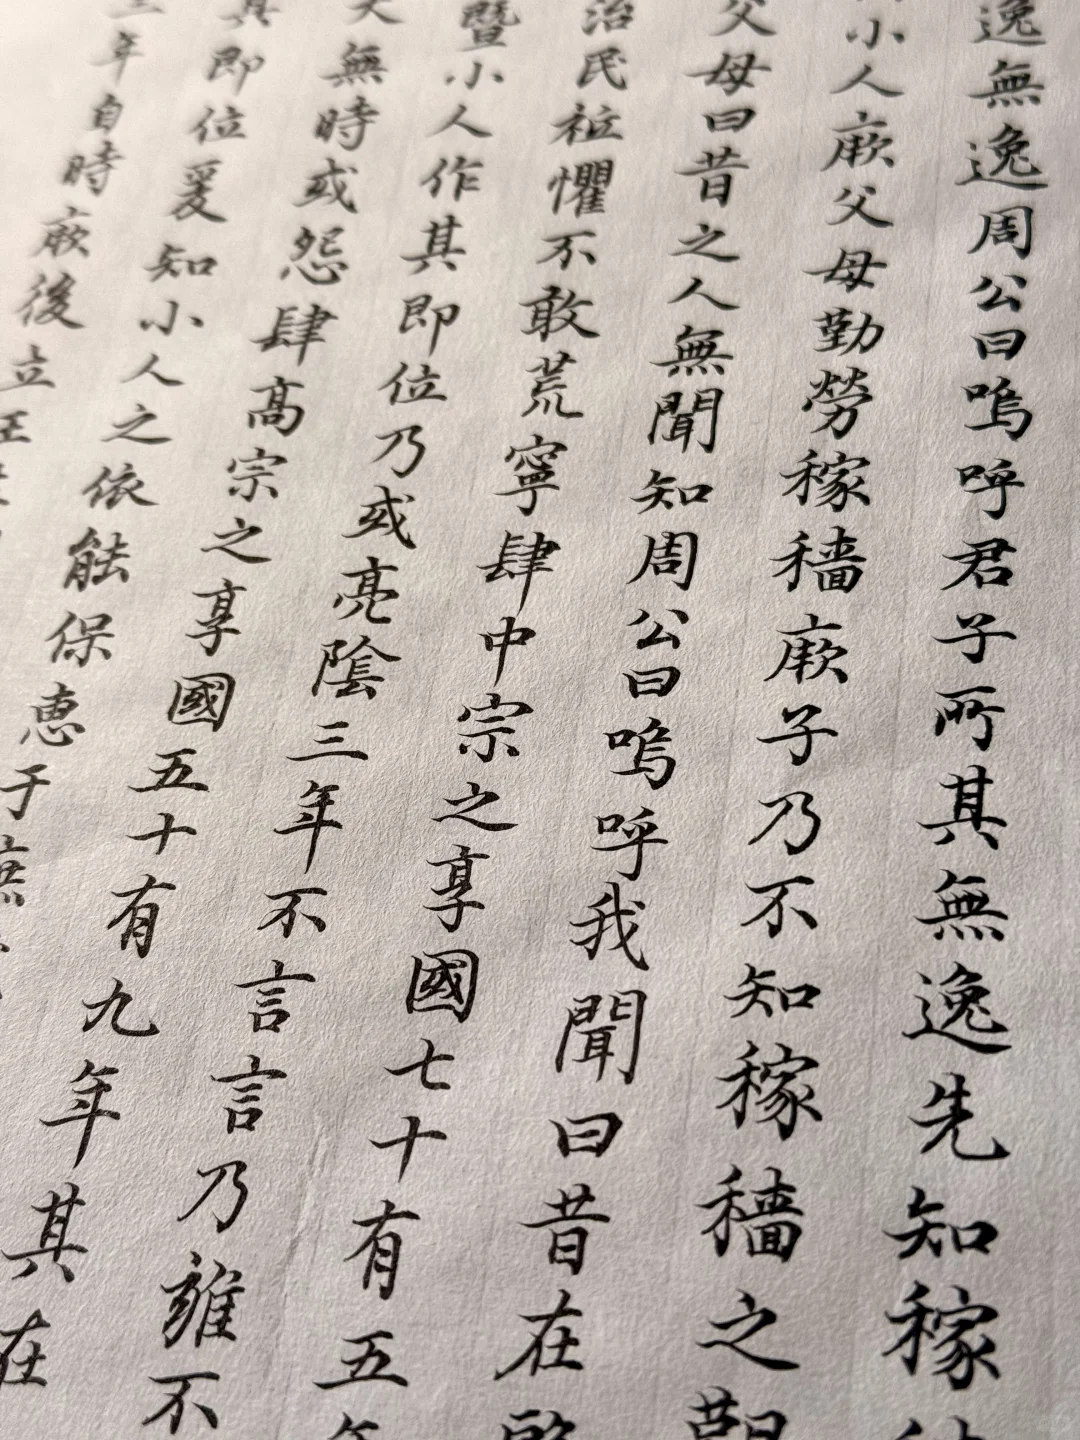 逸無逸周公曰嗚呼君子所其無逸先知稼
小人厥父母勤勞稼穡厥子乃不知稼穡之艱
父母曰昔之人無聞知周公曰嗚呼我聞曰昔在殷
治民祗懼不敢荒寧肆中宗之享國七十有五年
暨小人作其即位乃或亮陰三年不言言乃雍不
大無時或怨肆高宗之享國五十有九年其在
其即位爰知小人之依能保惠于庶
三年自時厥後立王